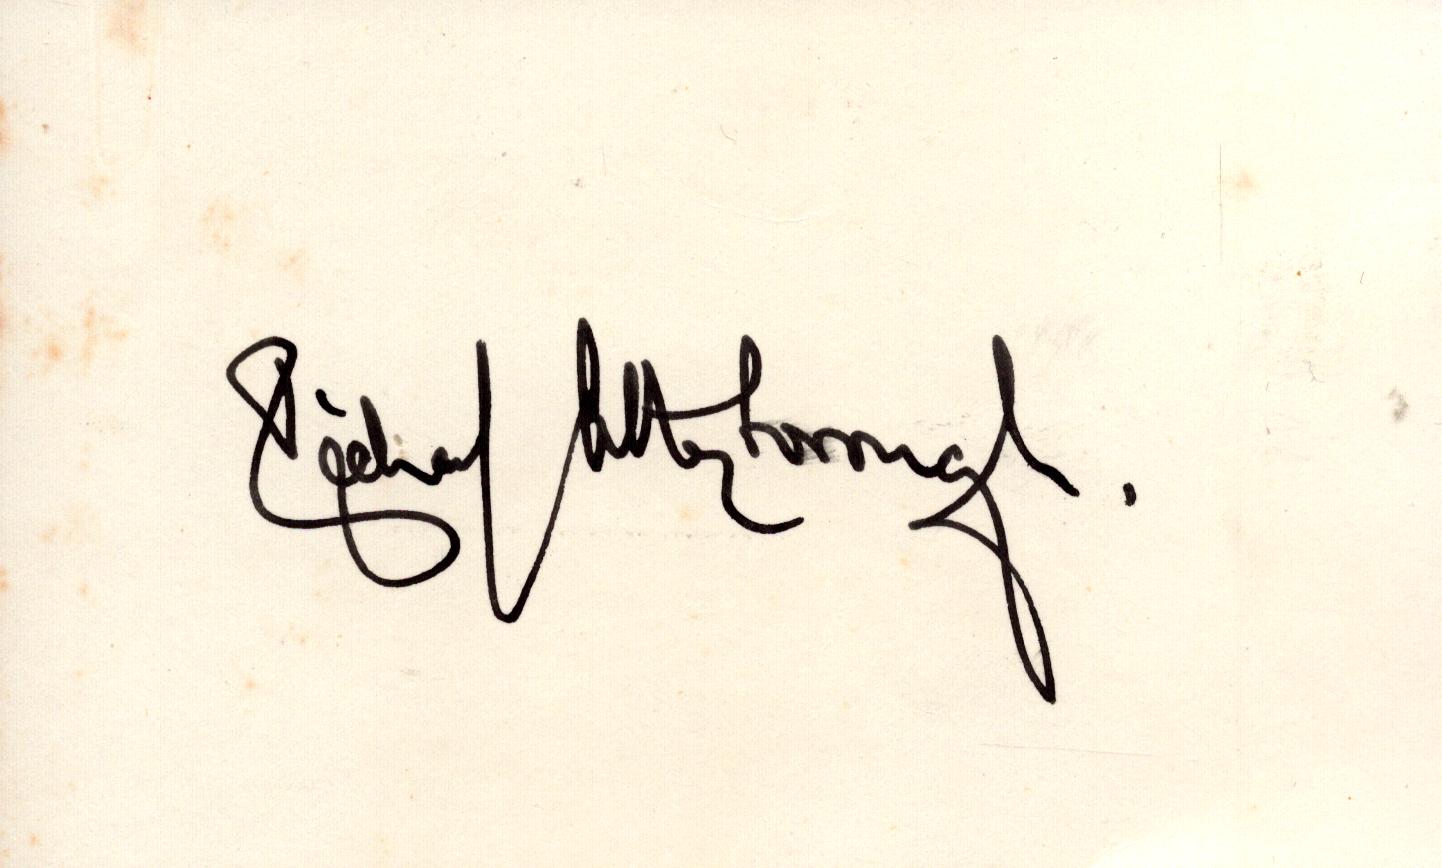 Richard Attenborough.